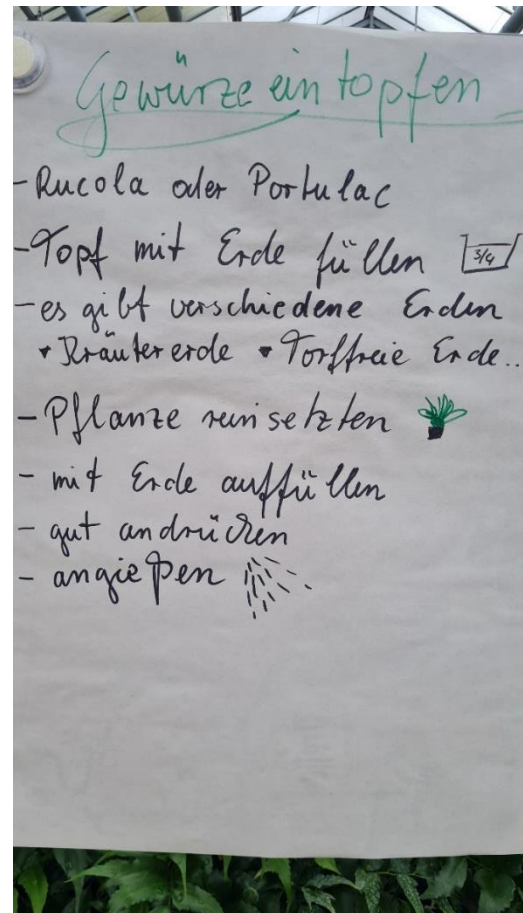 Gewürze eintopfen
- Rucola oder Portulac
- Topf mit Erde füllen 3/4
- es gibt verschiedene Erden
• Kräutererde • Torffreie Erde..
- Pflanze reinsetzten
- mit Erde auffüllen
- gut andrücken
- angießen